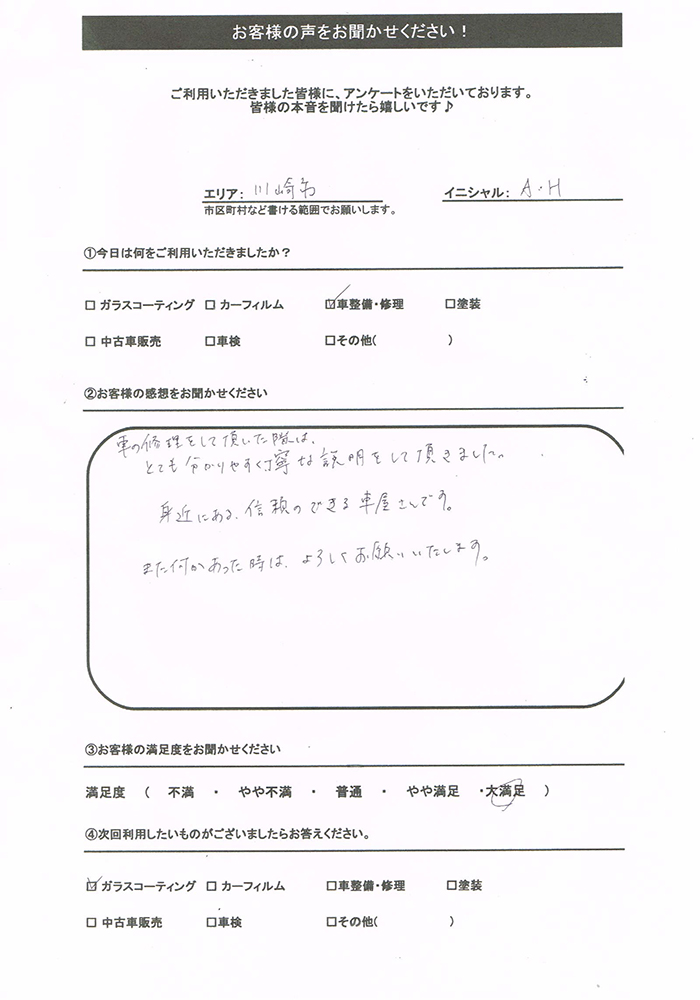 お客様の声をお聞かせください！
ご利用いただきました皆様に、アンケートをいただいております。
皆様の本音を聞けたら嬉しいです♪
エリア： 川崎市
イニシャル： A・H
市区町村など書ける範囲でお願いします。
①今日は何をご利用いただきましたか？
□ ガラスコーティング □ カーフィルム ☑車整備・修理 □塗装
□ 中古車販売 □車検 □その他( )
②お客様の感想をお聞かせください
車の修理をして頂いた際は、
とても分かりやすく丁寧な説明をして頂きました。
身近にある、信頼のできる車屋さんです。
また何かあった時は、よろしくお願いいたします。
③お客様の満足度をお聞かせください
満足度 （ 不満 ・ やや不満 ・ 普通 ・ やや満足 ・大満足 ）
④次回利用したいものがございましたらお答えください。
☑ ガラスコーティング □ カーフィルム □車整備・修理 □塗装
□ 中古車販売 □車検 □その他( )